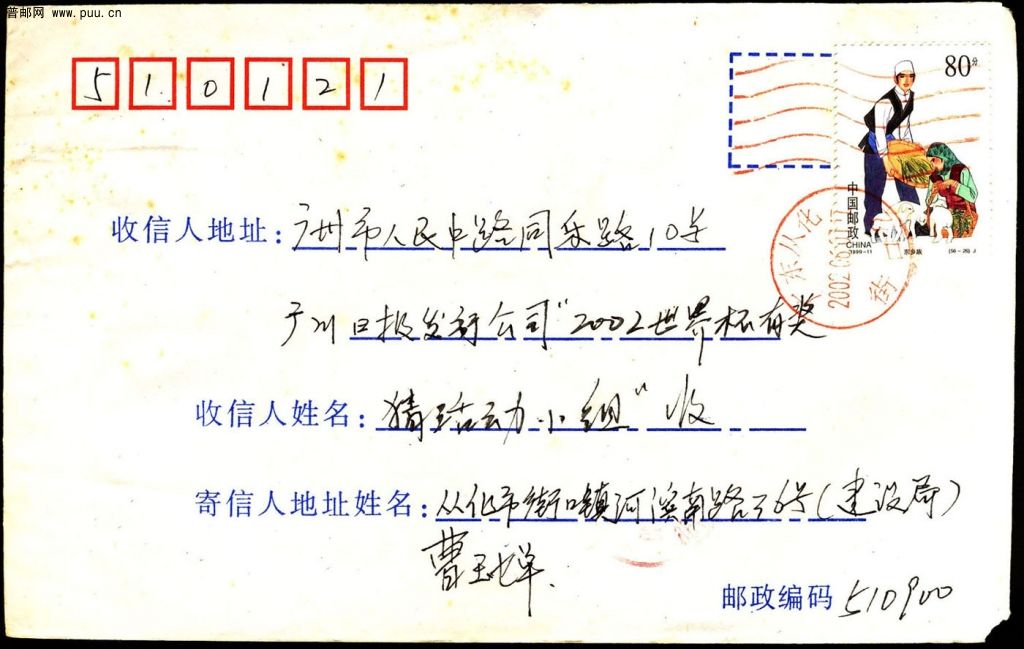 普邮网 www.puu.cn
510121
80分
中国邮政
CHINA
1999-11
东乡族
(56-26) J
收信人地址: 广州市人民中路同乐路10号
广州日报发行公司"2002世界杯有奖
收信人姓名: 猜球活动小组"收
寄信人地址姓名: 从化市街口镇河滨南路26号(建设局)
曹玉
邮政编码 510900
广东从化
2002
街